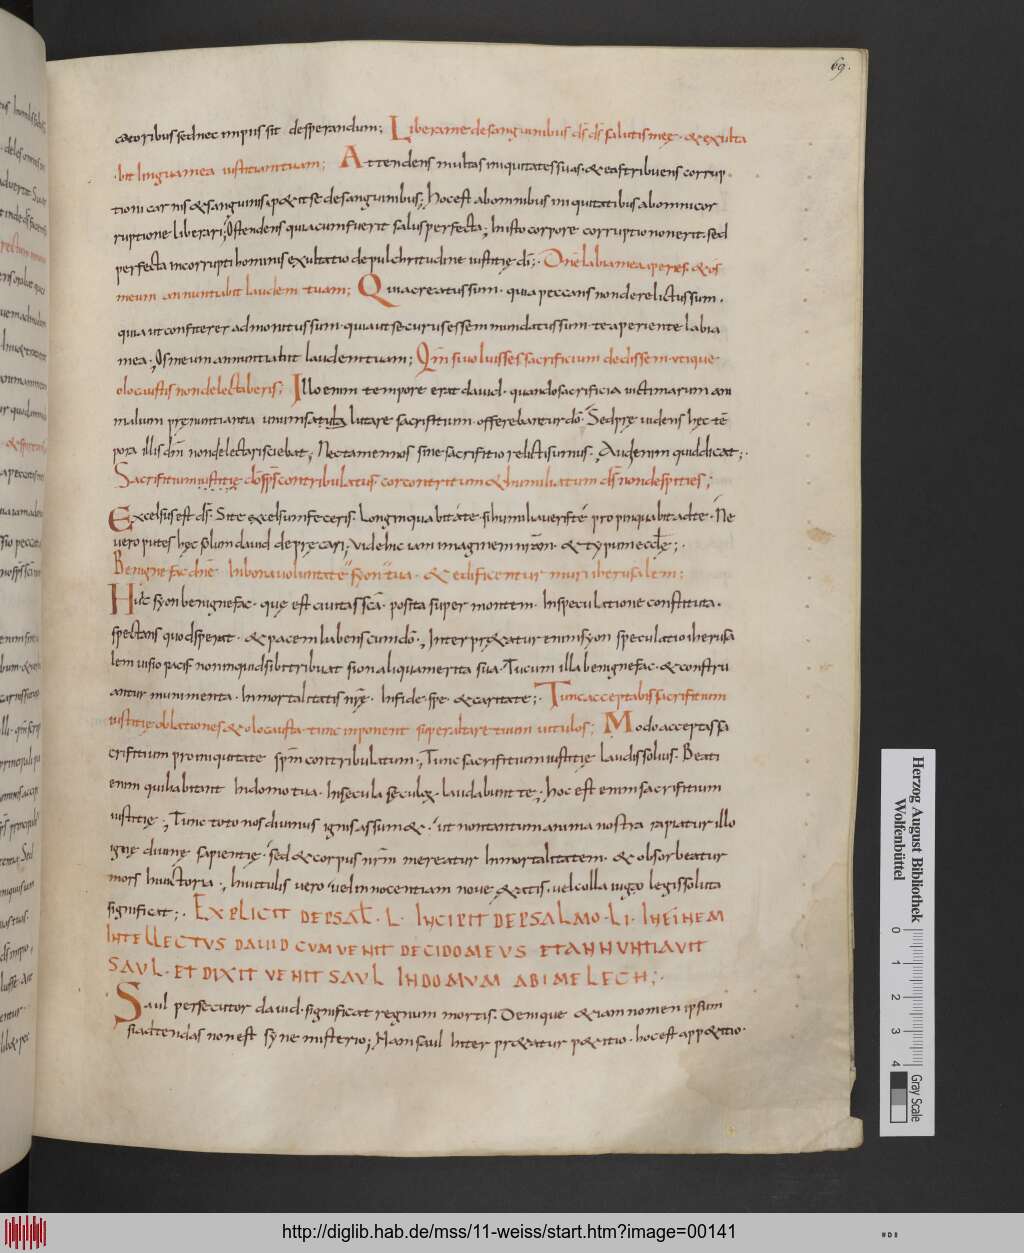 69.
catoribus sed nec impiis sit desperandum; Libera me de sanguinibus d̄s d̄s salutis meę · & exulta
·bit lingua mea iustitiam tuam; Attendens multas iniquitates suas · & eas tribuens corrup·
tioni carnis & sanguinis, p&it se de sanguinibus; hoc est ab omnibus iniquitatibus ab omni cor
ruptione liberari; Ostendens quia cum fuerit salus perfecta; In isto corpore corruptio non erit sed
perfecta incorrupti hominis exultatio de pulchritudine iustitię dī; · Dn̄e labia mea aperies · & os
meum annuntiabit laudem tuam; Quia creatus sum · quia peccans non derelictus sum ·
quia ut confiterer admonitus sum · quia ut securus essem mundatus sum · te aperiente labia
mea · Os meum annuntiabit laudem tuam; Qm̄ si voluisses sacrificium dedissem · utique
olocaustis non delectaberis; Illo enim tempore erat dauid · quando sacrificia uictimarum ani
malium prenuntiantia unum salutare sacrifitium · offerebantur dō · Sed pręuidens hęc tē
pora illis dm̄ non delectari sciebat; Nec tamen nos sine sacrifitio relicti sumus · Audenim quid dicat; ·
Sacrifitium iustitię dō sps̄ contribulatus cor contritum & humiliatum d̄s non despities;
Excelsus est d̄s · Si te excelsum feceris · Longinquabit a te · si humiliaueris te propinquabit ad te · Ne
uero putes hęc solum dauid deprecari; Vide hic iam imaginem nr̄am · & typum ecclę; ·
Benigne fac dn̄e In bona uoluntate syon tua · & edificentur muri iherusalem;
Huic syon benigne fac · quę est ciuitas sc̄a · posita super montem · In speculatione constituta ·
spectans quod sperat · & pacem habens cum dō; Interpr&atur enim syon speculatio iherusa
lem uisio pacis non inquid sibi tribuat sion aliqua merita sua · Tu cum illa benigne fac · & constru
antur munimenta · Inmortalitatis nr̄ę · In fide · spe · & caritate; · Tunc acceptabis sacrifitium
iustitię oblationes & olocausta · tunc inponent super altare tuum uitulos; Modo acceptas sa
crifitium pro iniquitate spm̄ contribulatum; Tunc sacrifitium iustitię laudis solius · Beati
enim qui habitant In domo tua · In secula seculoꝝ · laudabunt te; hoc est enim sacrifitium
iustitię; Tunc toto nos diuinus ignis assum& · ut non tantum anima nostra rapiatur illo
igne diuinę sapientię · sed & corpus nr̄m mereatur Inmortalitatem · & obsorbeatur
mors In uictoria; In uitulis uero uel innocentiam nouę ętatis · uel colla iugo legis soluta
significat; · EXPLICIT DE PSAL̄ · L · INCIPIT DE PSALMO · LI · IN FINEM
INTELLECTVS DAVID CVM VENIT DECIDOMEVS ET ANNUNTIAVIT
SAVL · ET DIXIT VENIT SAVL IN DOMVM ABIMELECH; ·
Saul persecutor dauid · significat regnum mortis · Denique &iam nomen ipsum
si adtendas non est syne misterio; Nam saul Interpr&atur p&itio · hoc est app&itio ·
Herzog August Bibliothek
Wolfenbüttel
0 1 2 3 4
Gray Scale
http://diglib.hab.de/mss/11-weiss/start.htm?image=00141